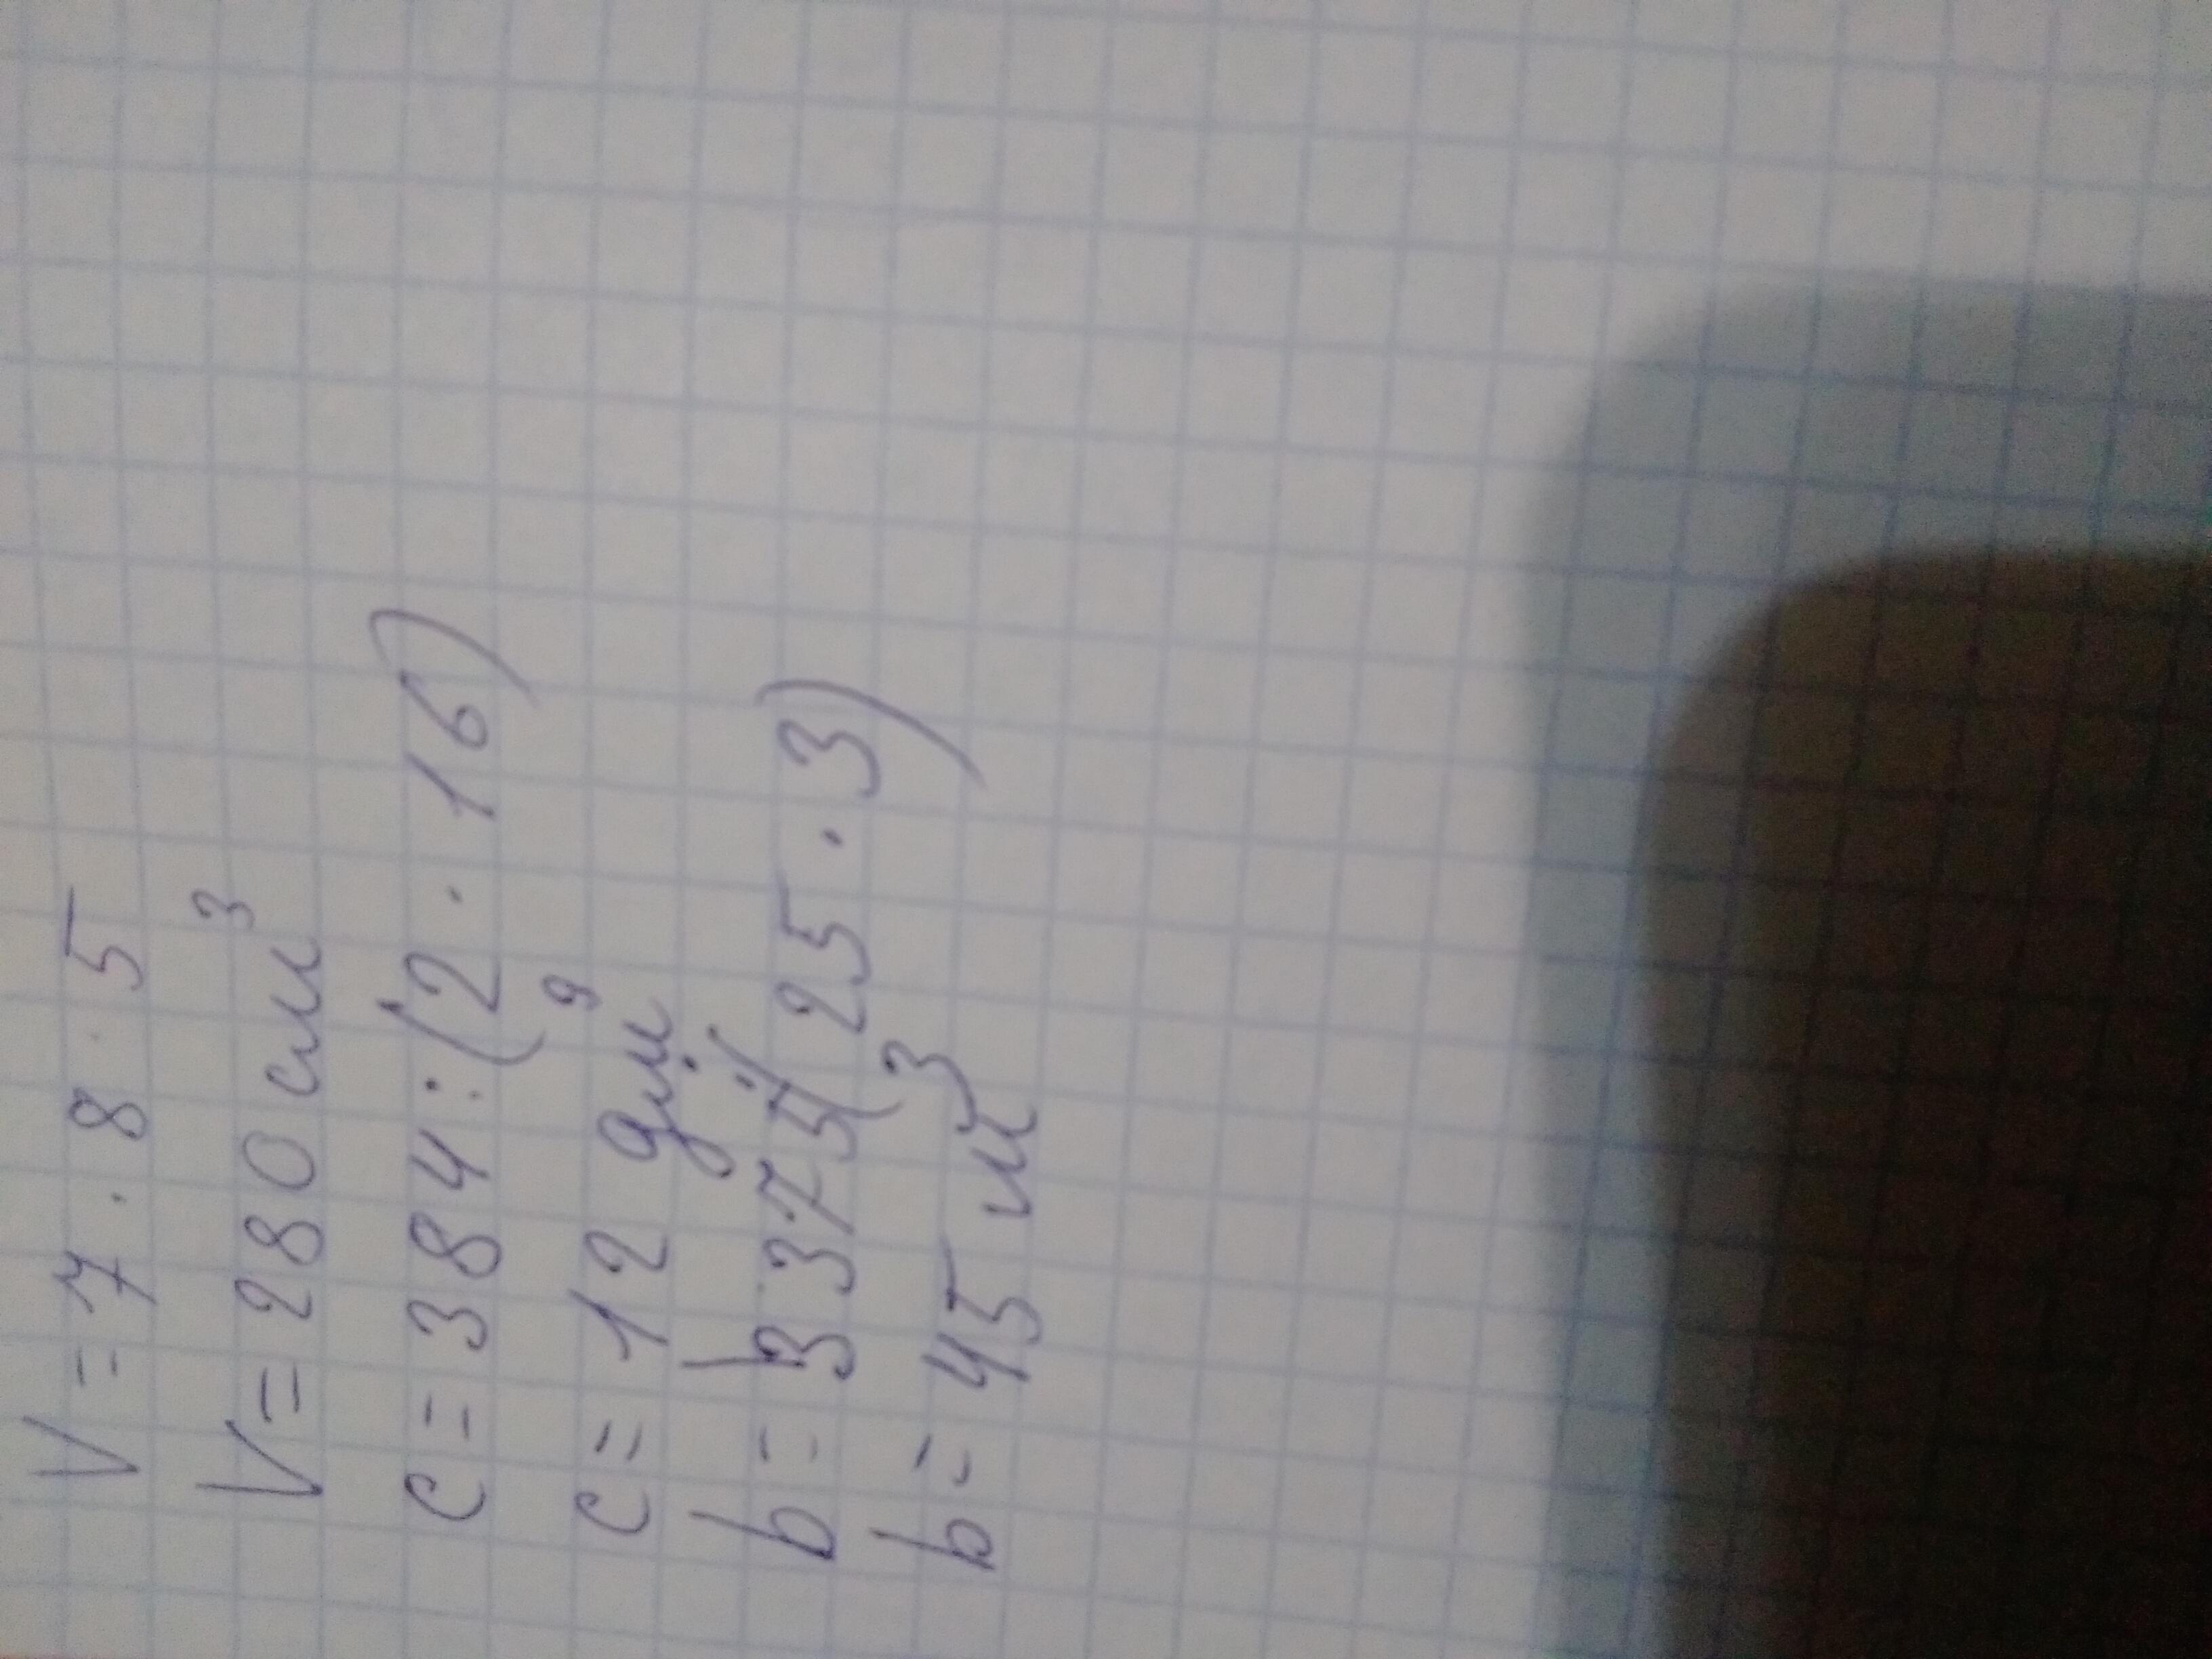 V = 7 · 8 · 5
V = 280 см³
c = 384 : (2 · 16)
c = 12 дм
b = 3375 : (25 · 3)
b = 45 м³